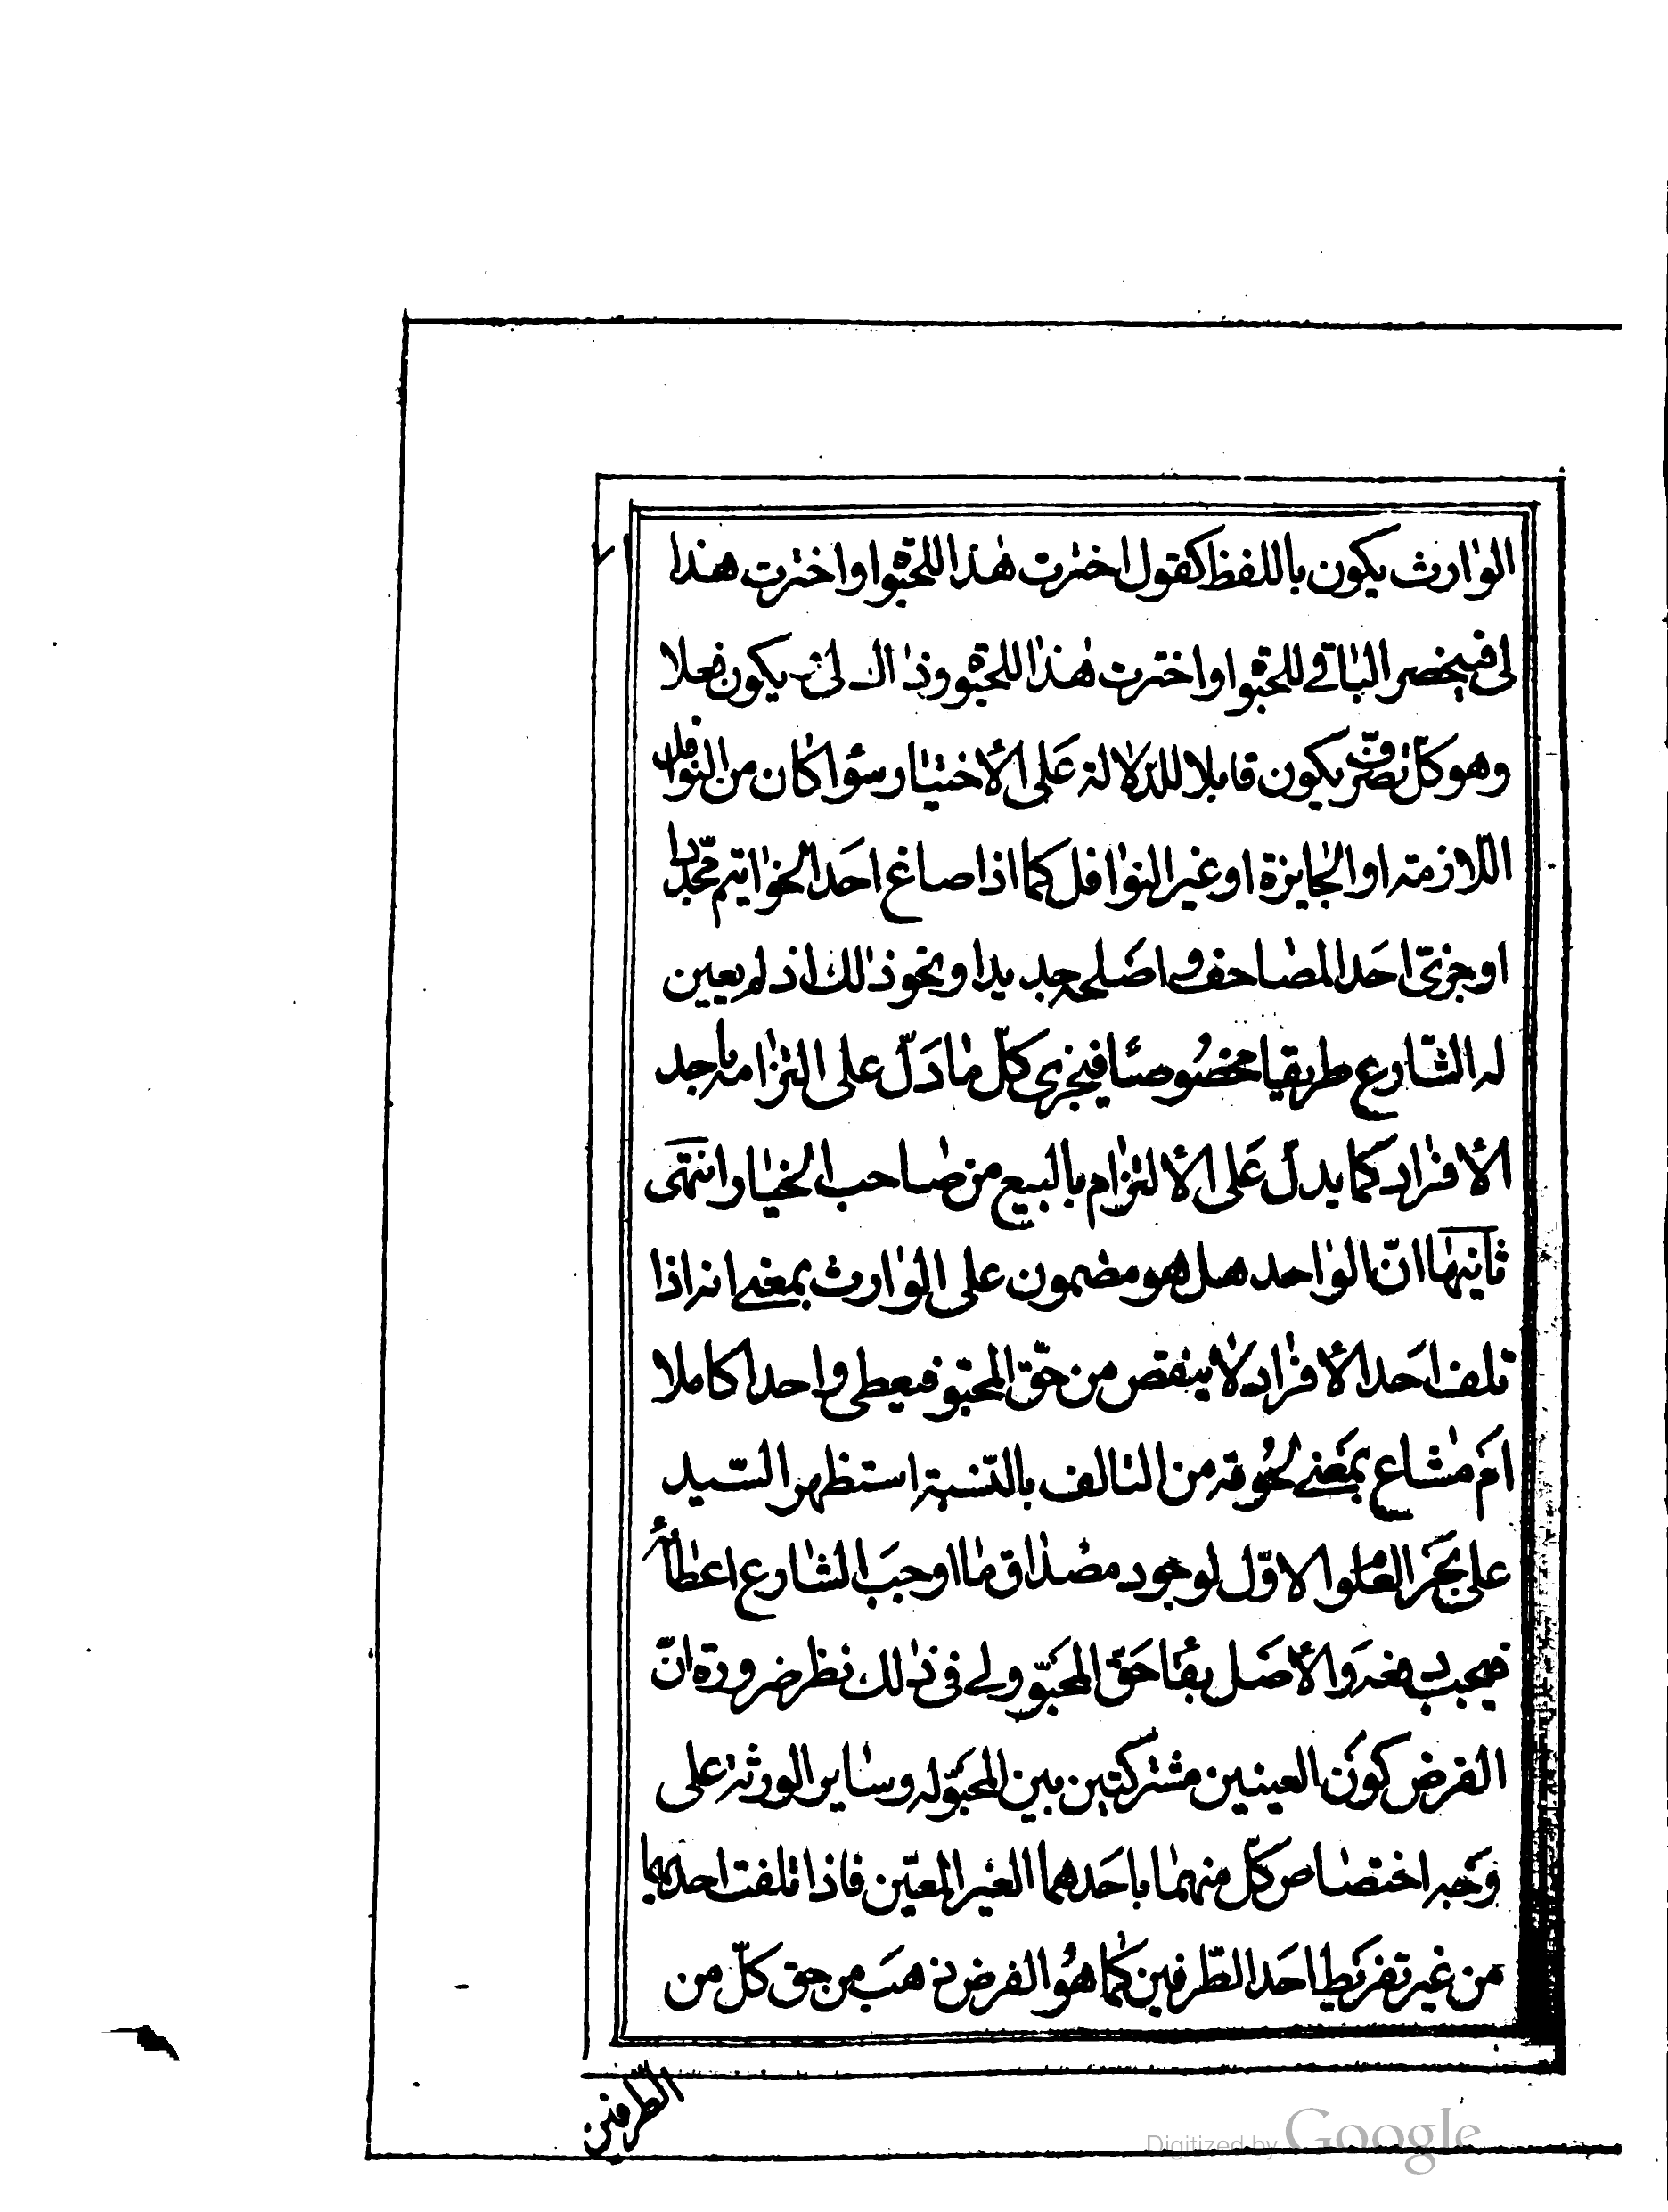 الوارث يكون باللفظ كقول اخترت هذا للحبوة او اخترت هذا
لى فينحصر الباقي للحبوة او اخترت هذا للحبوة وذاك لى يكون فعلا
وهو كلّ تصرّف يكون قابلا للدلالة على الأختيار سؤا كان من النواقل
اللازمة او الجايزة او غير النوافل كما اذا صاغ احد الخواتيم مجّددا
او جزّى احد المصاحف واصلحه جديدا ونحو ذلك اذ لم يعين
له الشارع طريقا مخصوصا فيجزى كلّ ما دلّ على التزامه باحد
الأفراد كما يدلّ على الألتزام بالبيع من صاحب الخيار انتهى
ثانيها انّ الواحد هل هو مضمون على الوارث بمعنى انه اذا
تلف احد الأفراد لا ينقص من حقّ المحبّو فيعطى واحدا كاملا
ام مشاع بمعنى لحوقه من التالف بالنّسبة استظهر السّيد
على بحر العلوم الاوّل لوجود مصداق ما اوجب الشارع اعطائه
فيجب دفعه والأصل بقأ حقّ المحبّو ولى فى ذلك نظر ضرورة انّ
الفرض كون العينين مشتركتين بين المحبّو له وساير الورثة على
وجه اختصاص كلّ منهما باحدهما الغير المعيّن فاذا تلفت احديهما
من غير تفريط احد الطّرفين كما هو الفرض ذهب من حق كلّ من
الطّرفين
Digitized by Google